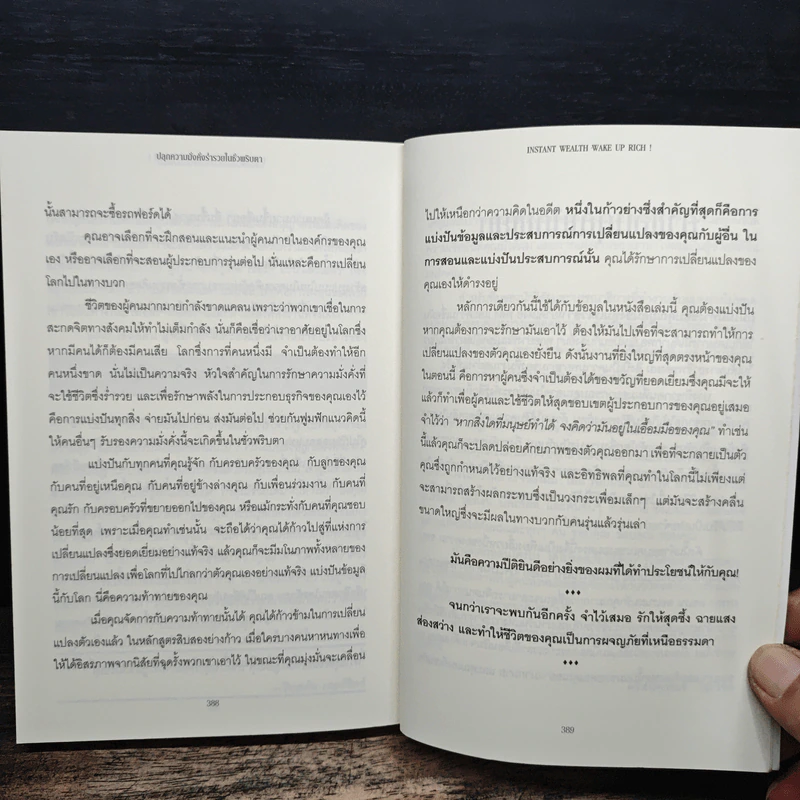 ปลุกความมั่งคั่งร่ำรวยในชั่วพริบตา
นั้นสามารถจะซื้อรถฟอร์ดได้
คุณอาจเลือกที่จะฝึกสอนและแนะนำผู้คนภายในองค์กรของคุณ
เอง หรืออาจเลือกที่จะสอนผู้ประกอบการรุ่นต่อไป นั่นแหละคือการเปลี่ยน
โลกไปในทางบวก
ชีวิตของผู้คนมากมายกำลังขาดแคลน เพราะว่าพวกเขาเชื่อในการ
สะกดจิตทางสังคมให้ทำไม่เต็มกำลัง นั่นก็คือเชื่อว่าเราอาศัยอยู่ในโลกซึ่ง
หากมีคนได้ก็ต้องมีคนเสีย โลกซึ่งการที่คนหนึ่งมี จำเป็นต้องทำให้อีก
คนหนึ่งขาด นั่นไม่เป็นความจริง หัวใจสำคัญในการรักษาความมั่งคั่งที่
จะใช้ชีวิตซึ่งร่ำรวย และเพื่อรักษาพลังในการประกอบธุรกิจของคุณเองไว้
คือการแบ่งปันทุกสิ่ง จ่ายมันไปก่อน ส่งมันต่อไป ช่วยกันฟูมฟักแนวคิดนี้
ให้คนอื่นๆ รับรองความมั่งคั่งนี้จะเกิดขึ้นในชั่วพริบตา
แบ่งปันกับทุกคนที่คุณรู้จัก กับครอบครัวของคุณ กับลูกของคุณ
กับคนที่อยู่เหนือคุณ กับคนที่อยู่ข้างล่างคุณ กับเพื่อนร่วมงาน กับคนที่
คุณรัก กับครอบครัวที่ขยายออกไปของคุณ หรือแม้กระทั่งกับคนที่คุณชอบ
น้อยที่สุด เพราะเมื่อคุณทำเช่นนั้น จะถือได้ว่าคุณได้ก้าวไปสู่ที่แห่งการ
เปลี่ยนแปลงซึ่งยอดเยี่ยมอย่างแท้จริง แล้วคุณก็จะมีมโนภาพทั้งหลายของ
การเปลี่ยนแปลง เพื่อโลกที่ไปไกลกว่าตัวคุณเองอย่างแท้จริง แบ่งปันข้อมูล
นี้กับโลก นี่คือความท้าทายของคุณ
เมื่อคุณจัดการกับความท้าทายนั้นได้ คุณได้ก้าวข้ามในการเปลี่ยน
แปลงตัวเองแล้ว ในหลักสูตรสิบสองย่างก้าว เมื่อใครบางคนหาหนทางเพื่อ
ให้ได้อิสรภาพจากนิสัยที่ฉุดรั้งพวกเขาเอาไว้ ในขณะที่คุณมุ่งมั่นจะเคลื่อน
388
INSTANT WEALTH WAKE UP RICH !
ไปให้เหนือกว่าความคิดในอดีต หนึ่งในก้าวย่างซึ่งสำคัญที่สุดก็คือการ
แบ่งปันข้อมูลและประสบการณ์การเปลี่ยนแปลงของคุณกับผู้อื่น ใน
การสอนและแบ่งปันประสบการณ์นั้น คุณได้รักษาการเปลี่ยนแปลงของ
คุณเองให้ดำรงอยู่
หลักการเดียวกันนี้ใช้ได้กับข้อมูลในหนังสือเล่มนี้ คุณต้องแบ่งปัน
หากคุณต้องการจะรักษามันเอาไว้ ต้องให้มันไปเพื่อที่จะสามารถทำให้การ
เปลี่ยนแปลงของตัวคุณเองยั่งยืน ดังนั้นงานที่ยิ่งใหญ่ที่สุดตรงหน้าของคุณ
ในตอนนี้ คือการหาผู้คนซึ่งจำเป็นต้องได้ของขวัญที่ยอดเยี่ยมซึ่งคุณมีจะให้
แล้วก็ทำเพื่อผู้คนและใช้ชีวิตให้สุดขอบเขตผู้ประกอบการของคุณอยู่เสมอ
จำไว้ว่า “หากสิ่งใดที่มนุษย์ทำได้ จงคิดว่ามันอยู่ในเอื้อมมือของคุณ” ทำเช่น
นี้แล้วคุณก็จะปลดปล่อยศักยภาพของตัวคุณออกมา เพื่อที่จะกลายเป็นตัว
คุณซึ่งถูกกำหนดไว้อย่างแท้จริง และอิทธิพลที่คุณทำในโลกนี้ไม่เพียงแต่
จะสามารถสร้างผลกระทบซึ่งเป็นวงกระเพื่อมเล็กๆ แต่มันจะสร้างคลื่น
ขนาดใหญ่ซึ่งจะมีผลในทางบวกกับคนรุ่นแล้วรุ่นเล่า
มันคือความปีติยินดีอย่างยิ่งของผมที่ได้ทำประโยชน์ให้กับคุณ!
♦♦♦
จนกว่าเราจะพบกันอีกครั้ง จำไว้เสมอ รักให้สุดซึ้ง ฉายแสง
ส่องสว่าง และทำให้ชีวิตของคุณเป็นการผจญภัยที่เหนือธรรมดา
♦♦♦
389